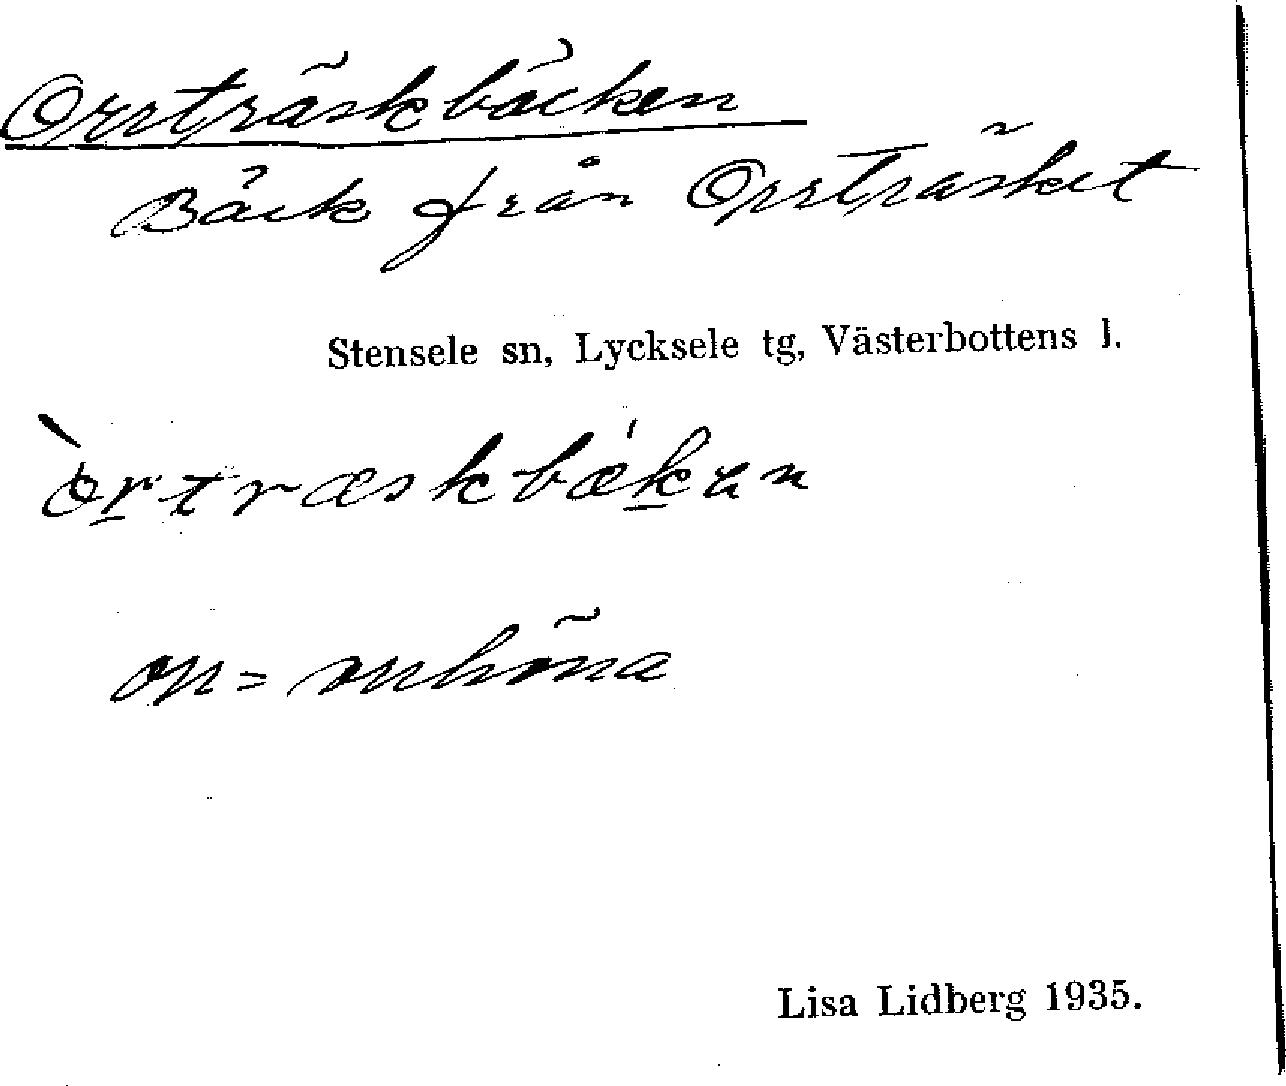 Orrträskbäcken
Bäck från Orrträsket
Stensele sn, Lycksele tg, Västerbottens l.
òrtræskbækan
orr = orrhöna
Lisa Lidberg 1935.